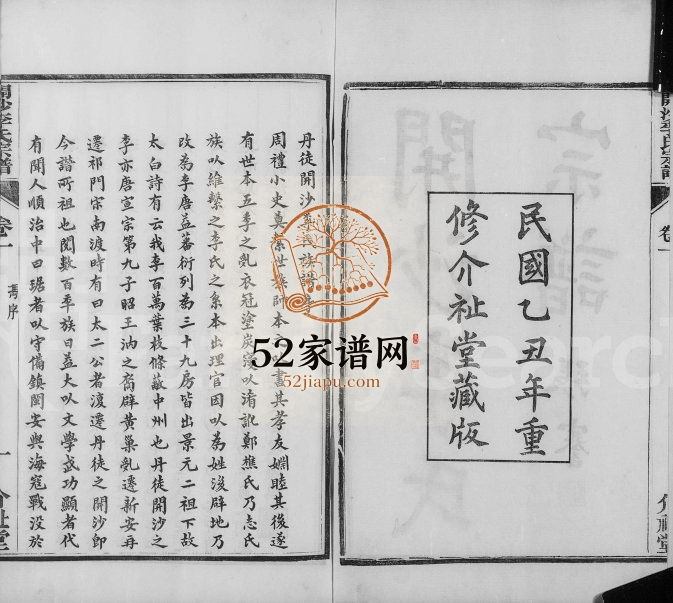 民國乙丑年重
修介祉堂藏版
開沙李氏宗譜
卷一
丹徒開沙李氏族譜序
周禮小史奠 世 本 書其孝友婣睦其後遂
有世本五季之亂衣冠塗炭寖以淆訛鄭樵氏乃志氏
族以維繫之李氏之系本出理官因以為姓後辟地乃
改為李唐益蕃衍列為三十九房皆出景元二祖下故
太白詩有云我李百萬葉枝條蔽中州也丹徒開沙之
李亦唐宣宗第九子昭王汭之裔辟黃巢亂遷新安再
遷祁門宋南渡時有曰太二公者復遷丹徒之開沙即
今譜所祖也閱數百年族日益大以文學武功顯者代
有聞人順治中曰琚者以守備鎮閩安與海寇戰沒於
開沙李氏宗譜
卷一
舊序
一
介祉堂
52家谱网
52jiapu.com